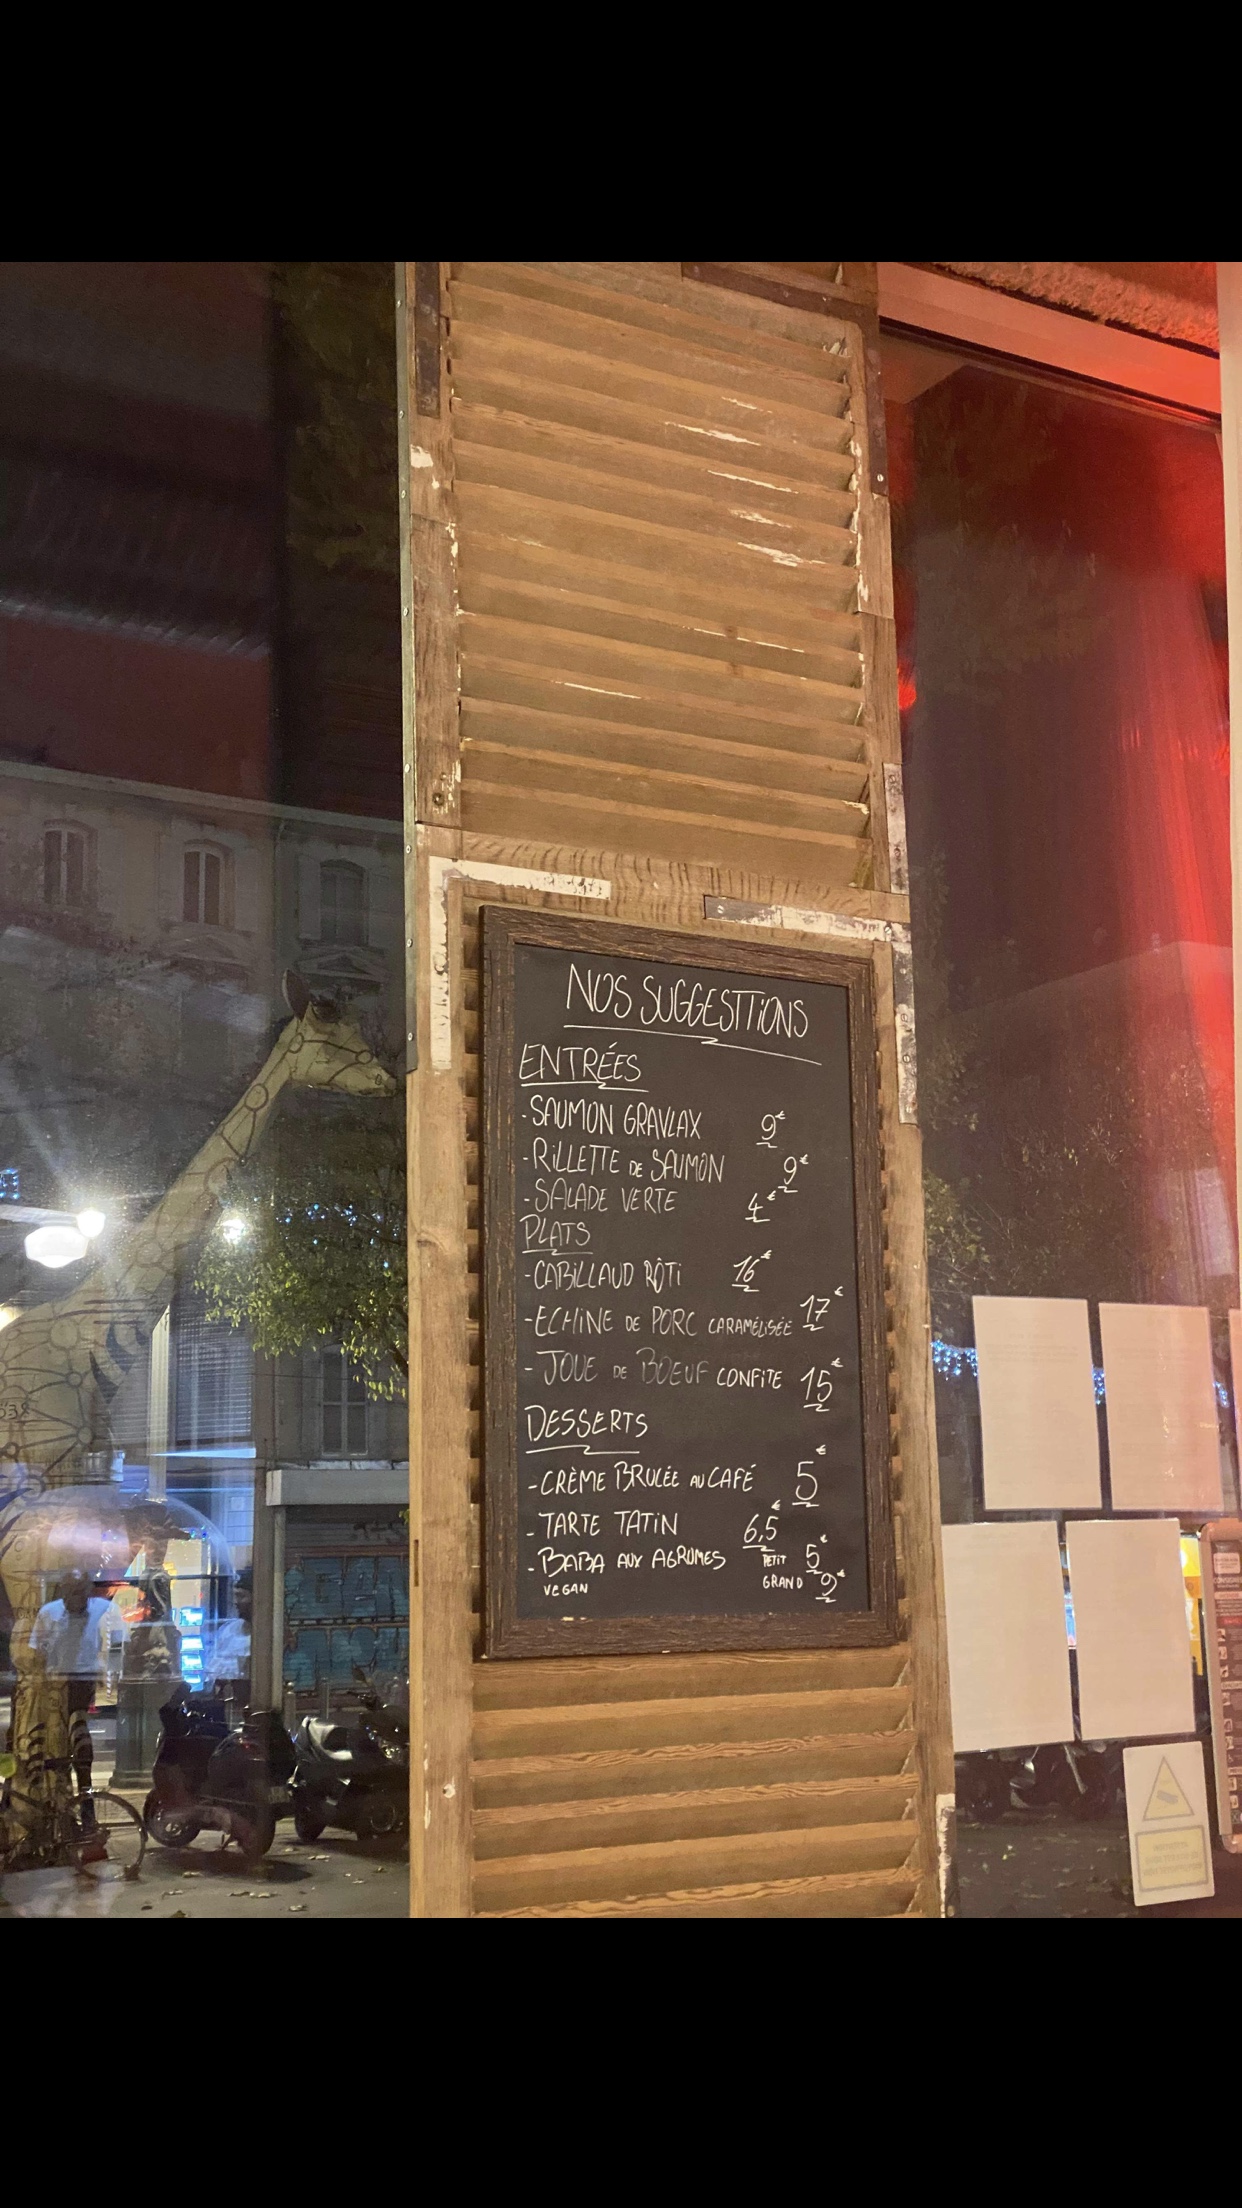 NOS SUGGESTTIONS
ENTRÉES
-SAUMON GRAVLAX 9€
-RILLETTE DE SAUMON 9€
-SALADE VERTE 4€
PLATS
-CABILLAUD RÔTI 16€
-ECHINE DE PORC CARAMÉLISÉE 17€
- JOUE DE BOEUF CONFITE 15€
DESSERTS
-CRÈME BRULÉE AU CAFÉ 5€
- TARTE TATIN 6,5€
- BABA AUX AGRUMES PETIT 5€
VEGAN GRAND 9€